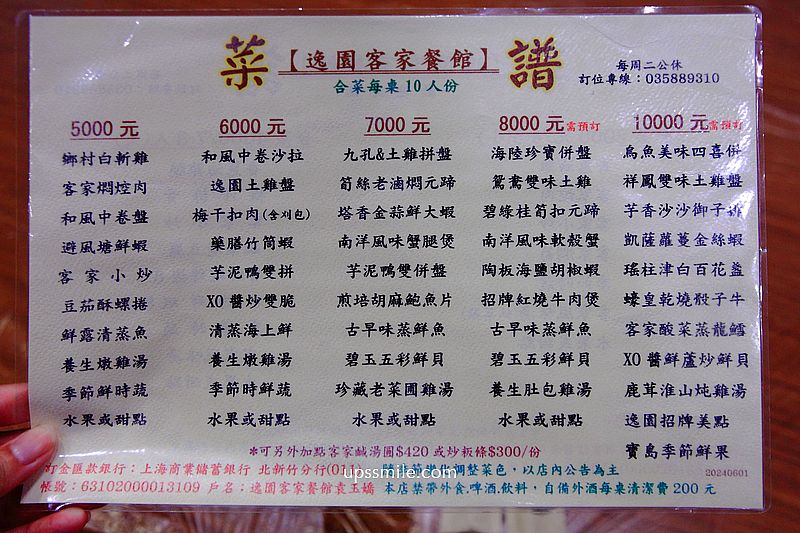 菜
【逸園客家餐館】
譜
合菜每桌10人份
每周二公休
訂位專線：035889310
5000 元
鄉村白斬雞
客家燜焢肉
和風中卷盤
避風塘鮮蝦
客家小炒
豆茄酥螺捲
鮮露清蒸魚
養生燉雞湯
季節鮮時蔬
水果或甜點
6000 元
和風中卷沙拉
逸園土雞盤
梅干扣肉(含刈包)
藥膳竹筒蝦
芋泥鴨雙拼
XO醬炒雙脆
清蒸海上鮮
養生燉雞湯
季節時鮮蔬
水果或甜點
7000 元
九孔&土雞拼盤
筍絲老滷燜元蹄
塔香金蒜鮮大蝦
南洋風味蟹腿煲
芋泥鴨雙併盤
煎培胡麻鮑魚片
古早味蒸鮮魚
碧玉五彩鮮貝
珍藏老菜圃雞湯
水果或甜點
8000 元需預訂
海陸珍寶併盤
鴛鴦雙味土雞
碧綠桂筍扣元蹄
南洋風味軟殼蟹
陶板海鹽胡椒蝦
招牌紅燒牛肉煲
古早味蒸鮮魚
碧玉五彩鮮貝
養生肚包雞湯
水果或甜點
10000 元需預訂
烏魚美味四喜併
祥鳳雙味土雞盤
芋香沙沙御子排
凱薩蘿蔓金絲蝦
瑤柱津白百花盞
蠔皇乾燒骰子牛
客家酸菜蒸龍鱈
XO醬鮮蘆炒鮮貝
鹿茸淮山炖雞湯
逸園招牌美點
寶島季節鮮果
*可另外加點客家鹹湯圓$420 或炒粄條$300/份
訂金匯款銀行：上海商業儲蓄銀行 北新竹分行(011)
調整菜色，以店內公告為主
20240601
帳號：63102000013109 戶名：逸園客家餐館袁玉嬌
本店禁帶外食.啤酒.飲料，自備外酒每桌清潔費 200 元
upssmile.com